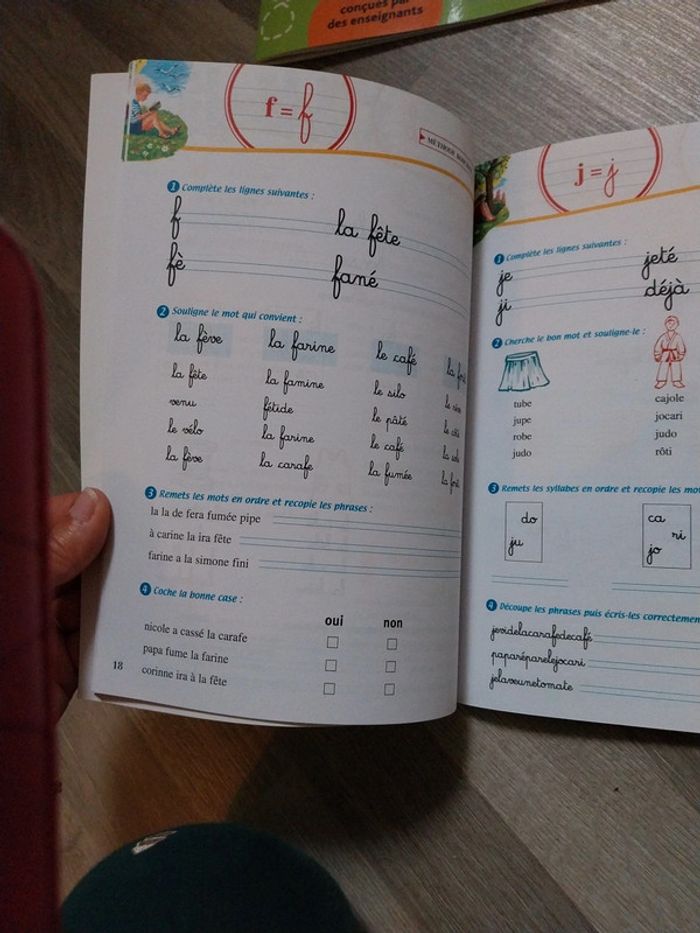 conçues par
des enseignants
f = f
MÉTHODE
1 Complète les lignes suivantes :
f la fête
fè fané
2 Souligne le mot qui convient :
la fève la farine le café
la fête la famine le silo
venu fétide le pâté
le vélo la farine le café
la fève la carafe la fumée
3 Remets les mots en ordre et recopie les phrases :
la la de fera fumée pipe
à carine la ira fête
farine a la simone fini
4 Coche la bonne case :
oui non
nicole a cassé la carafe
papa fume la farine
corinne ira à la fête
18
j = j
1 Complète les lignes suivantes :
je jeté
ji déjà
2 Cherche le bon mot et souligne-le :
tube cajole
jupe jocari
robe judo
judo rôti
3 Remets les syllabes en ordre et recopie les
do ca
ju ri
jo
4 Découpe les phrases puis écris-les
jevidelacarafedecafé
papapréparelejocari
jelaveunetomate